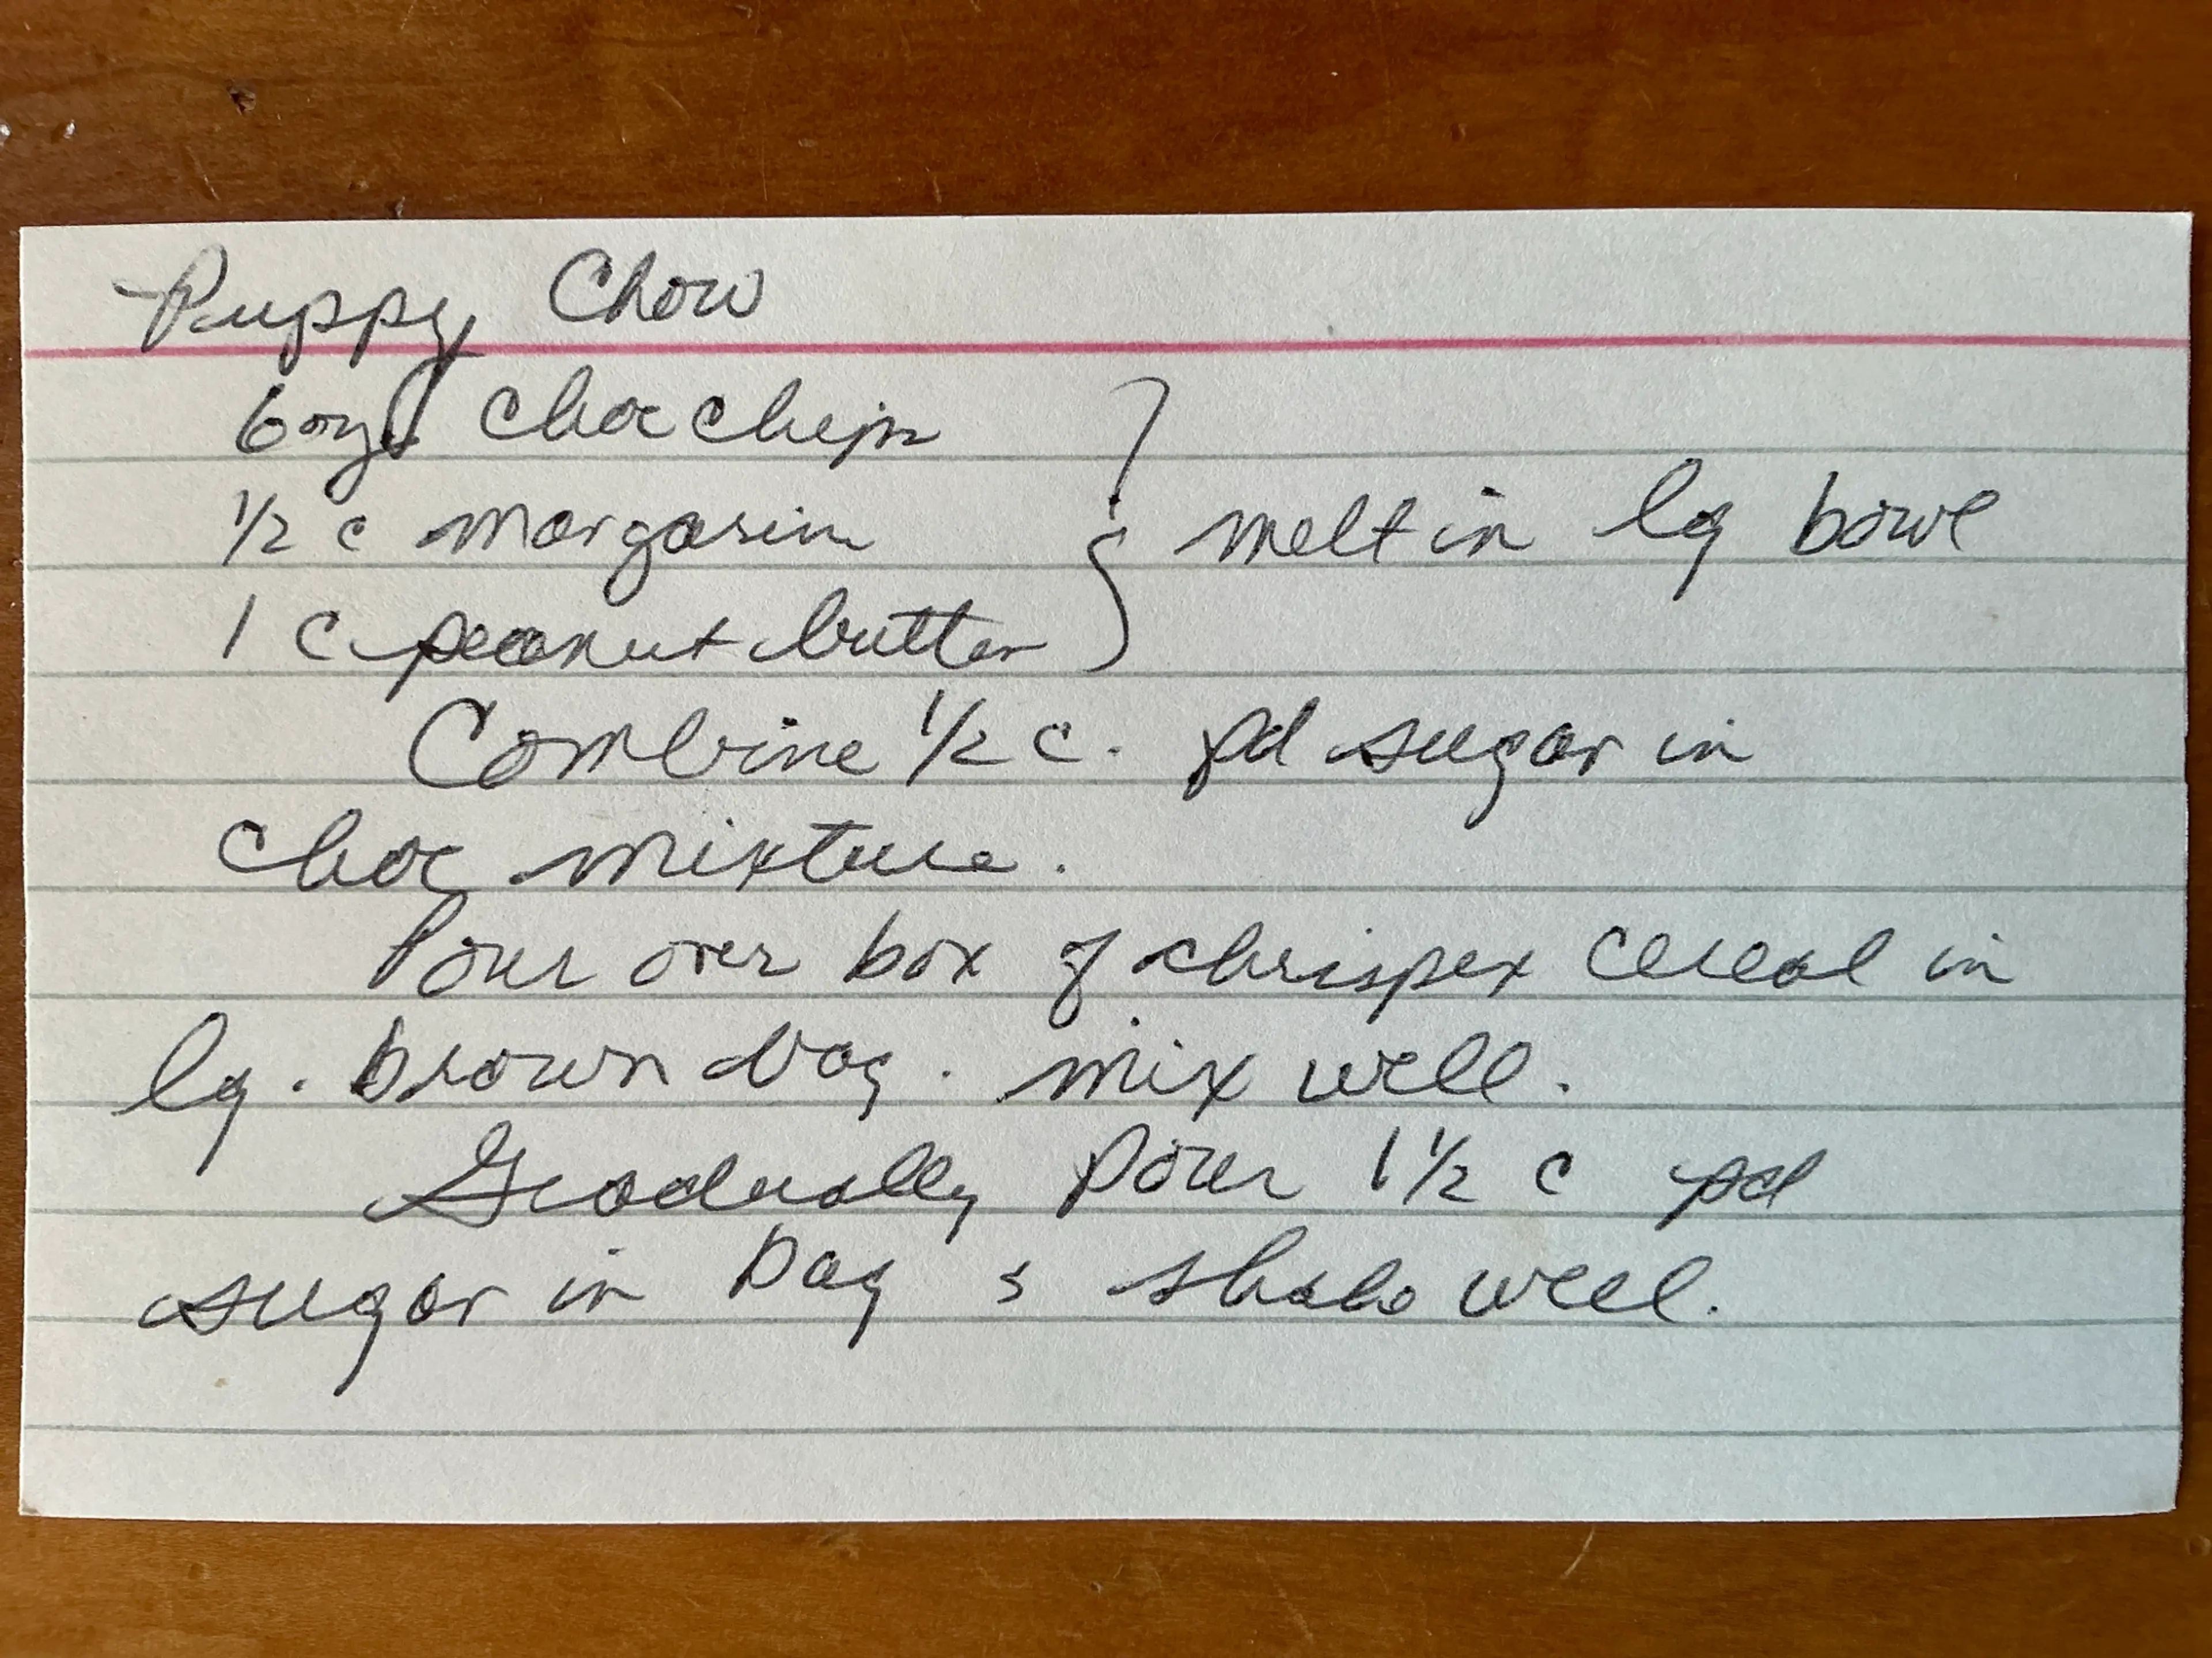 Puppy Chow
6 oz. choc chips
1/2 c margarine
1 c peanut butter } melt in lg bowl
Combine 1/2 c. pd sugar in
choc mixture.
Pour over box of chrispex cereal in
lg. brown bag. mix well.
Gradually pour 1 1/2 c pd
sugar in bag & shake well.